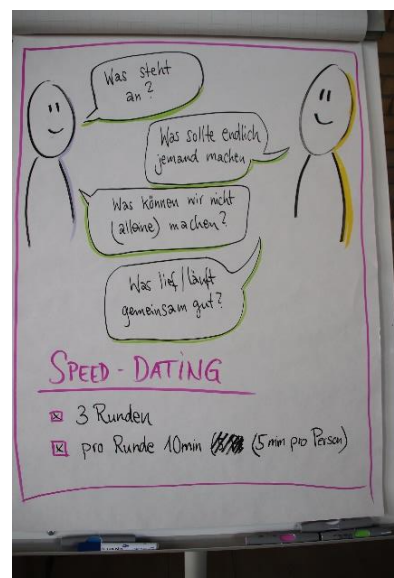 Was steht
an?
Was sollte endlich
jemand machen
Was können wir nicht
(alleine) machen?
Was lief/läuft
gemeinsam gut?
SPEED-DATING
3 Runden
pro Runde 10min (5 min pro Person)